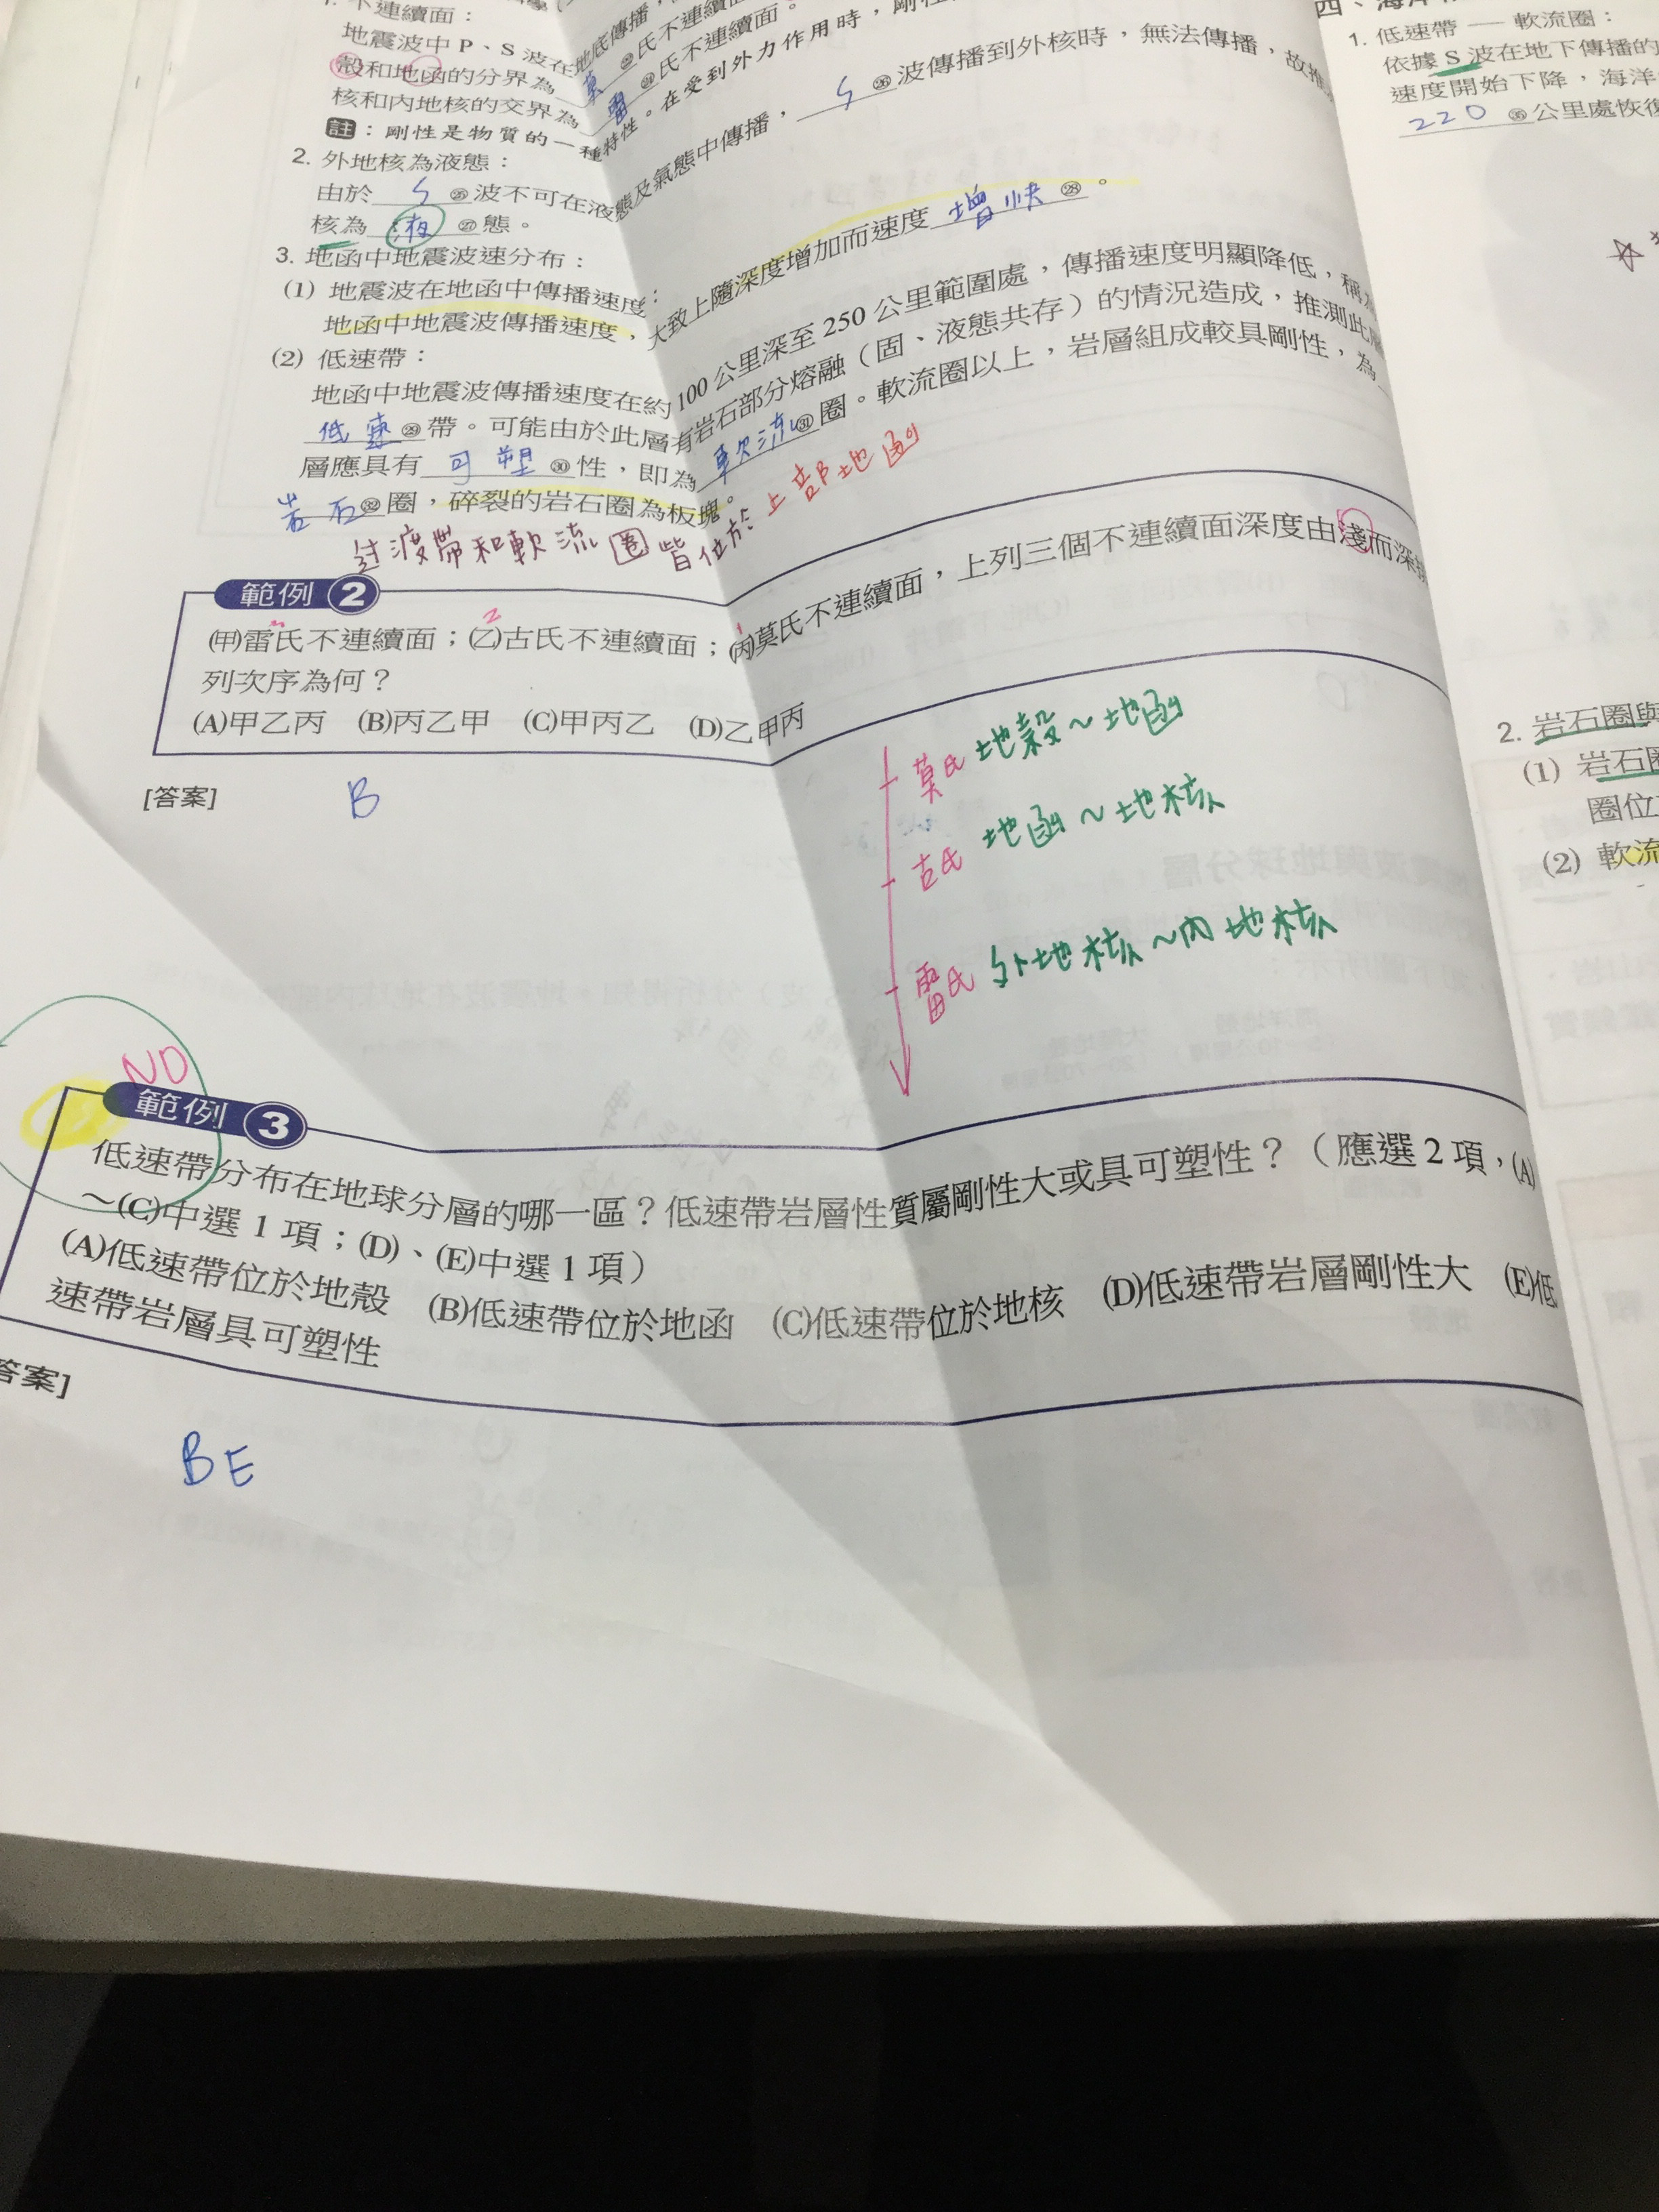 1. 不連續面：
地震波中 P、S 波在地底傳播，
殼和地函的分界為 莫 氏不連續面
核和內地核的交界為 雷 ㉔氏不連續面。
註：剛性是物質的一種特性。在受到外力作用時，剛性
2. 外地核為液態：
由於 S ㉕波不可在液態及氣態中傳播， S ㉖波傳播到外核時，無法傳播，故推
核為 液 ㉗態。
3. 地函中地震波速分布：
(1) 地震波在地函中傳播速度：
地函中地震波傳播速度，大致上隨深度增加而速度 增快 ㉘。
(2) 低速帶：
地函中地震波傳播速度在約 100 公里深至 250 公里範圍處，傳播速度明顯降低，稱為
低速 ㉙帶。可能由於此層有岩石部分熔融（固、液態共存）的情況造成，推測此層
層應具有 可塑 ㉚性，即為 軟流 ㉛圈。軟流圈以上，岩層組成較具剛性，為
岩石 ㉜圈，碎裂的岩石圈為板塊。
过渡帶和軟流圈皆位於上部地函
範例 2
3 2 1
(甲)雷氏不連續面；(乙)古氏不連續面；(丙)莫氏不連續面，上列三個不連續面深度由淺而深排
列次序為何？
(A)甲乙丙 (B)丙乙甲 (C)甲丙乙 (D)乙甲丙
[答案] B
莫氏 地殼～地函
古氏 地函～地核
雷氏 外地核～內地核
NO
範例 3
低速帶分布在地球分層的哪一區？低速帶岩層性質屬剛性大或具可塑性？（應選 2 項，(A)
～(C)中選 1 項；(D)、(E)中選 1 項）
(A)低速帶位於地殼 (B)低速帶位於地函 (C)低速帶位於地核 (D)低速帶岩層剛性大 (E)低
速帶岩層具可塑性
答案]
BE
四、海洋
1. 低速帶 — 軟流圈：
依據 S 波在地下傳播的
速度開始下降，海洋
220 ㉟公里處恢復
2. 岩石圈與
(1) 岩石圈
圈位
(2) 軟流